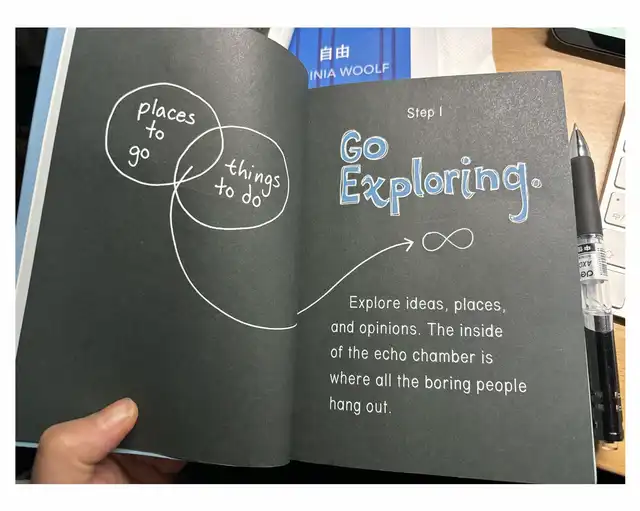 自由
INIA WOOLF
places
to
go
things
to do
Step 1
Go
Exploring.
Explore ideas, places,
and opinions. The inside
of the echo chamber is
where all the boring people
hang out.